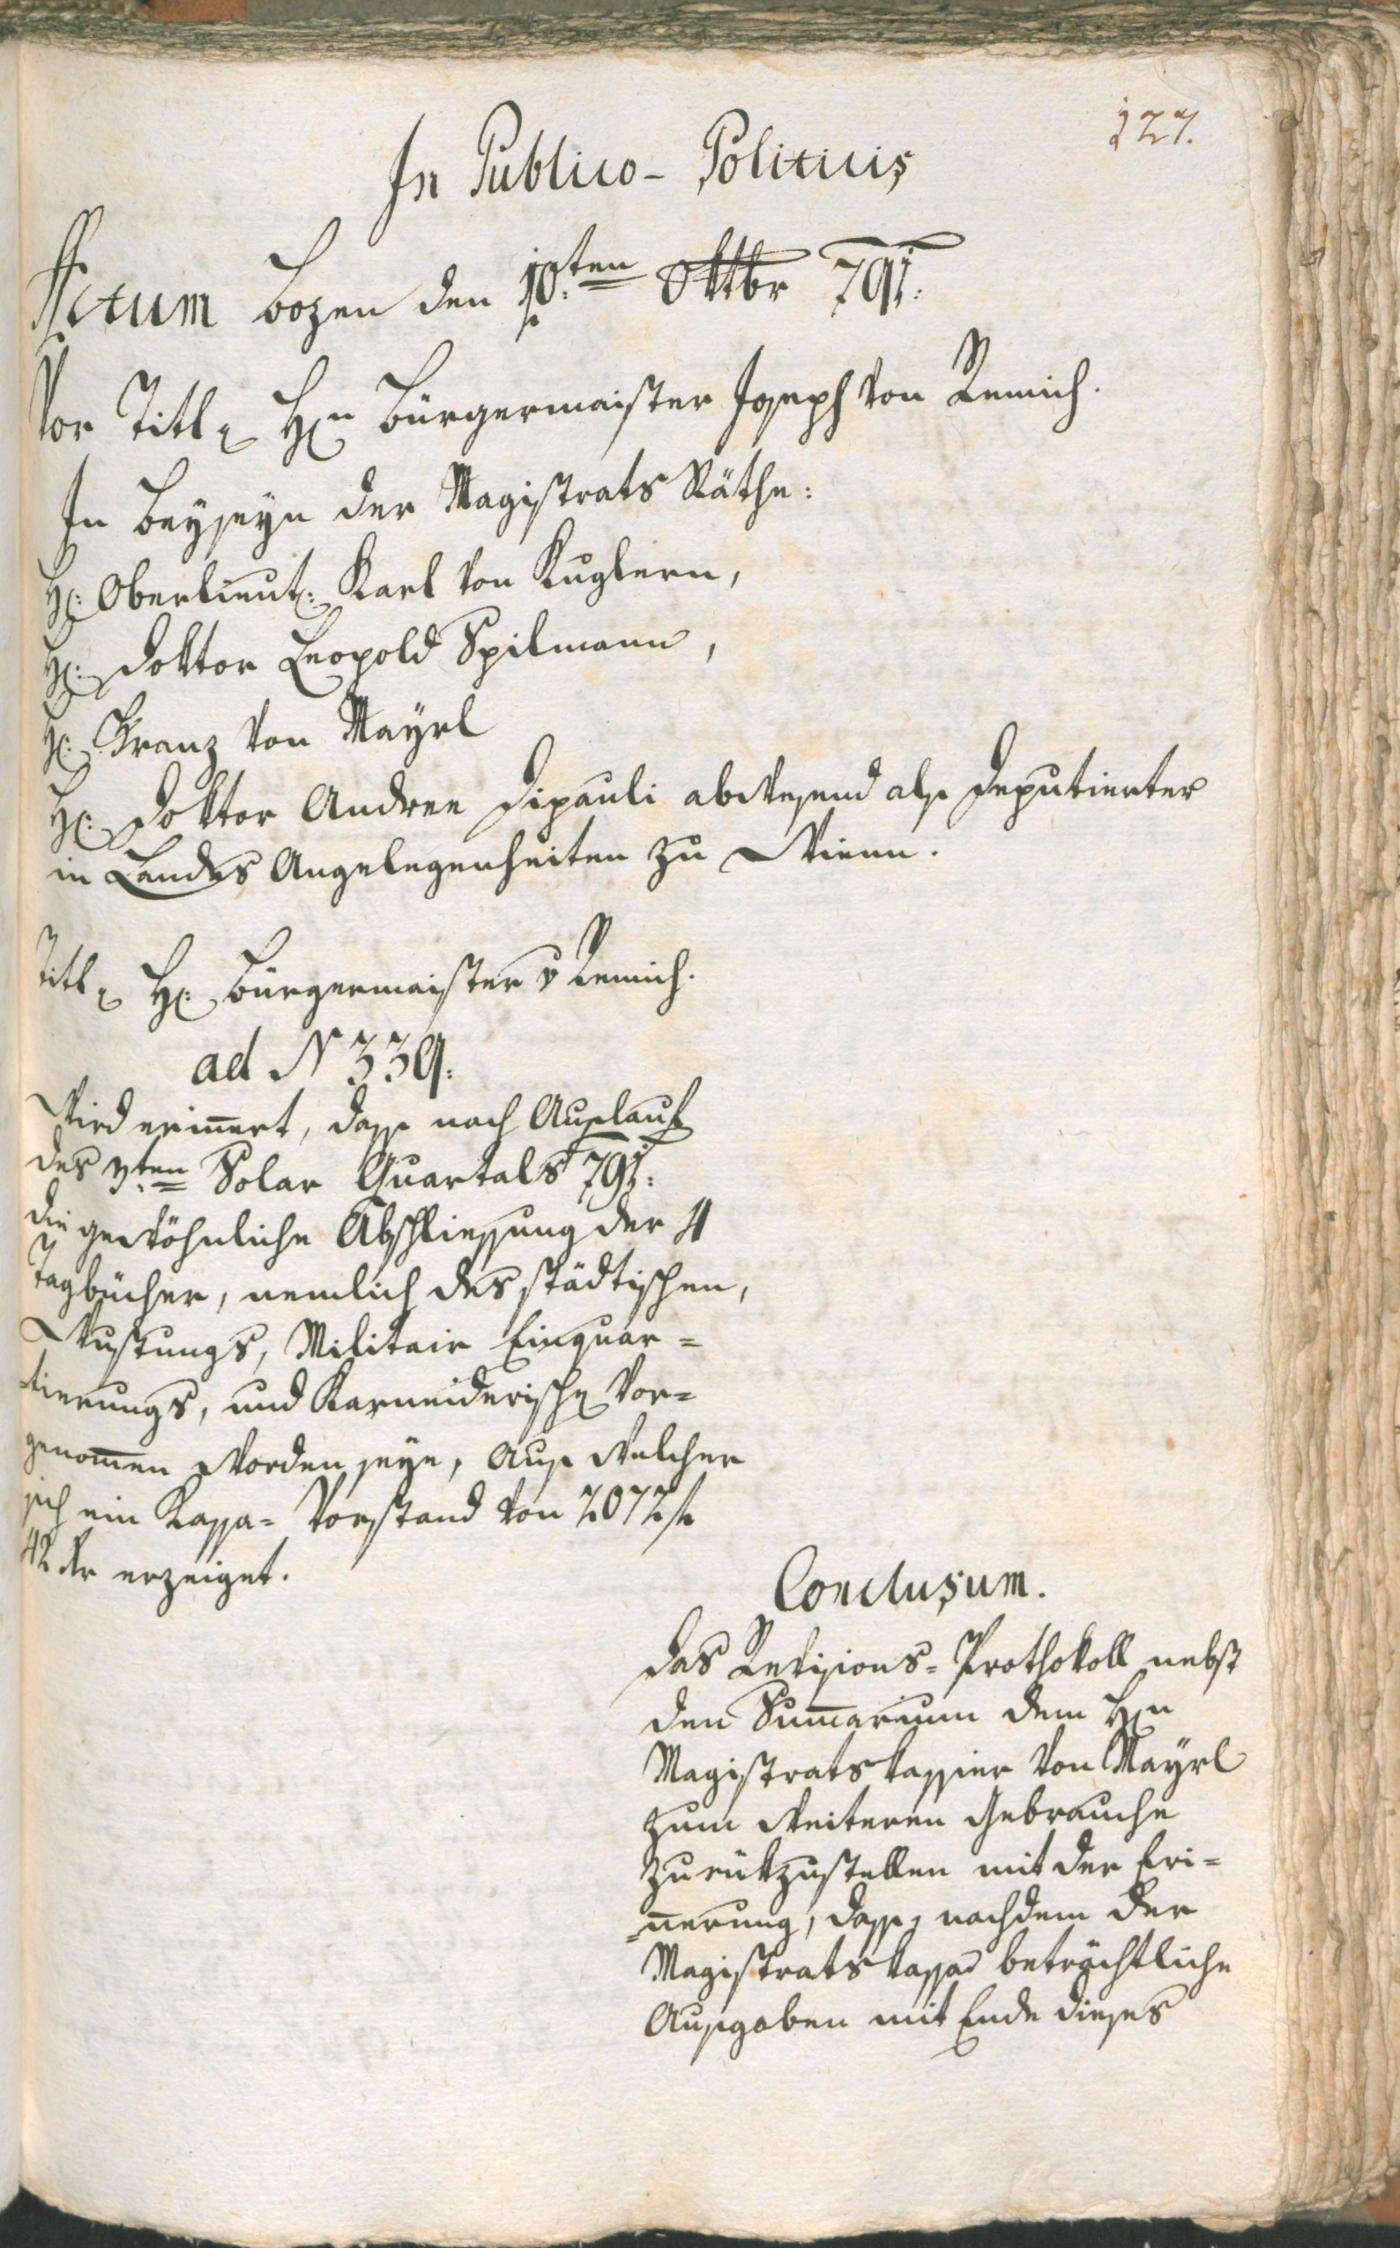 127.
In Publico-Politicis
Actum Bozen den 10.ten Oktbr 791.
Vor Titl. Hn Bürgermaister Joseph von Remich.
In Beyseyn der Magistrats Räthe:
H: Oberlieut: Karl von Kuglern,
H: Doktor Leopold Spilmann,
H: Franz von Mayrl
H: Doktor Andree Dipauli abwesend als Deputierter
in Landes Angelegenheiten zu Wienn.
Titl. H: Bürgermaister v Remich.
ad N 339.
Wird erin̄ert, dass nach Auslauf
des 3.ten Solar Quartals 791.
die gewöhnliche Abschliessung der 4
Tagbücher, nemlich des städtischen,
Wustungs, Militair Einquar=
=tierungs, und Karneiderisch vor=
genom̄en worden seye, aus welcher
sich ein Kassa= Vorstand von 2072 f
42 kr erzeiget.
Conclusum.
Das Revisions= Prothokoll nebst
den Sum̄arium dem Hn
Magistratskassier von Mayrl
zum weiteren Gebrauche
zurükzustellen mit der Eri=
=n̄erung, dass, nachdem der
Magistratskassa beträchtliche
Ausgaben mit Ende dieses